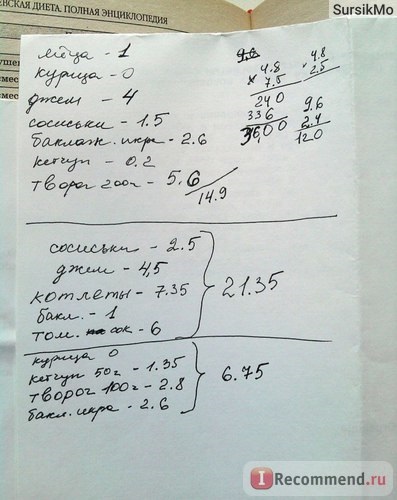 SursikMo
ЕВСКАЯ ДИЕТА. ПОЛНАЯ ЭНЦИКЛОПЕДИЯ
яйца - 1
курица - 0
джем - 4
сосиськи - 1.5
баклаж. икра - 2.6
кетчуп - 0.2
творог 200г - 5.6
14.9
9,6
× 4.8
7.5
240
336
3600
4.8
2.5
9.6
2.4
120
сосиськи - 2.5
джем - 4,5
котлеты - 7.35
бакл. - 1
том. сок - 6
21.35
курица 0
кетчуп 50г - 1.35
творог 100г - 2.8
бакл. икра - 2.6
6.75
I Recommend.ru